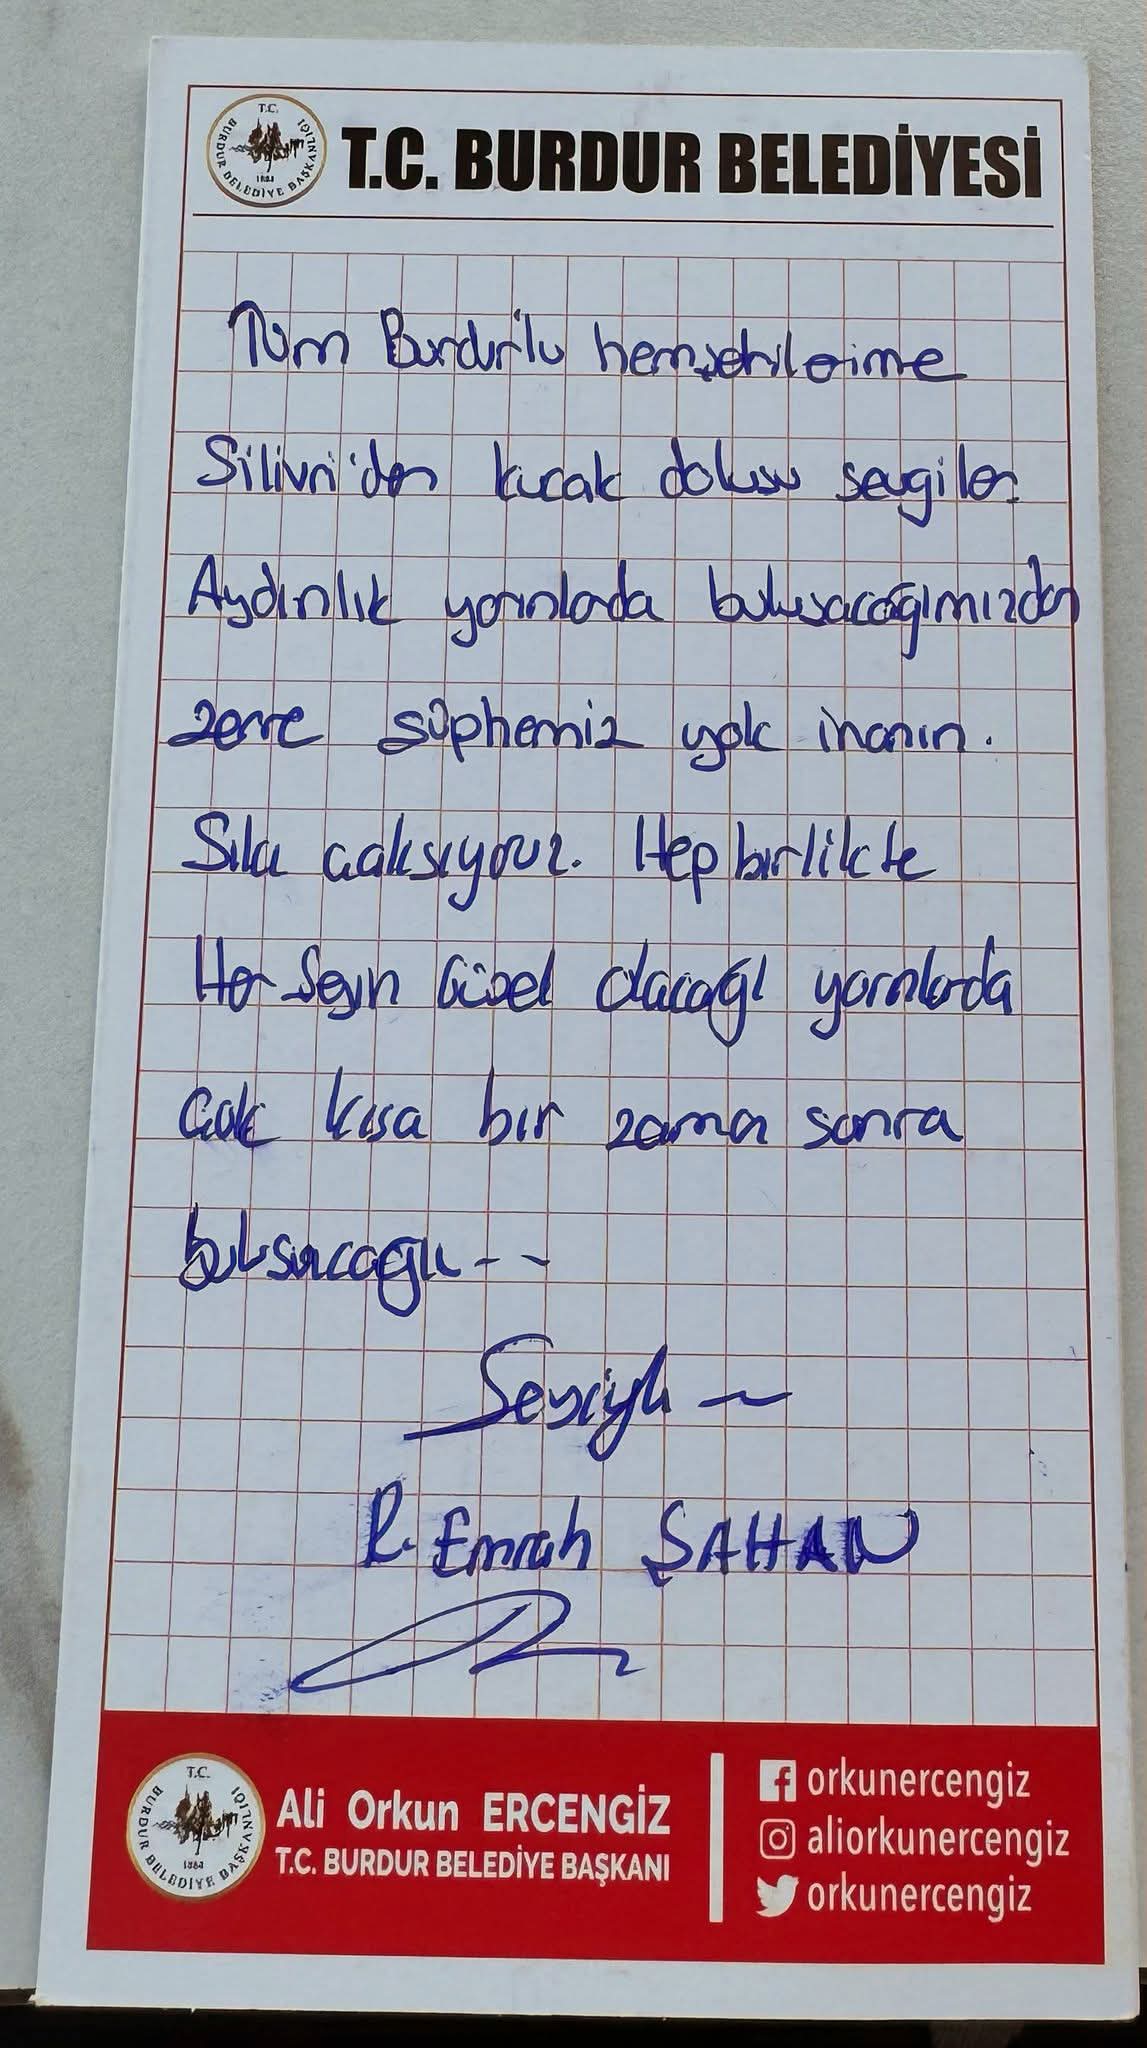 T.C.
BURDUR BELEDİYE BAŞKANLIĞI
T.C. BURDUR BELEDİYESİ
Tüm Burdur'lu hemşehrilerime
Silivri'den kucak dolusu sevgiler
Aydınlık yarınlarda buluşacağımızdan
zerre şüphemiz yok inanın.
Sıkı çalışıyoruz. Hep birlikte
Her Şeyin Güzel olacağı yarınlarda
çok kısa bir zaman sonra
buluşacağız--
Sevgiyle
R. Emrah ŞAHAN
T.C.
BURDUR BELEDİYE BAŞKANLIĞI
Ali Orkun ERCENGİZ
T.C. BURDUR BELEDİYE BAŞKANI
orkunercengiz
aliorkunercengiz
orkunercengiz